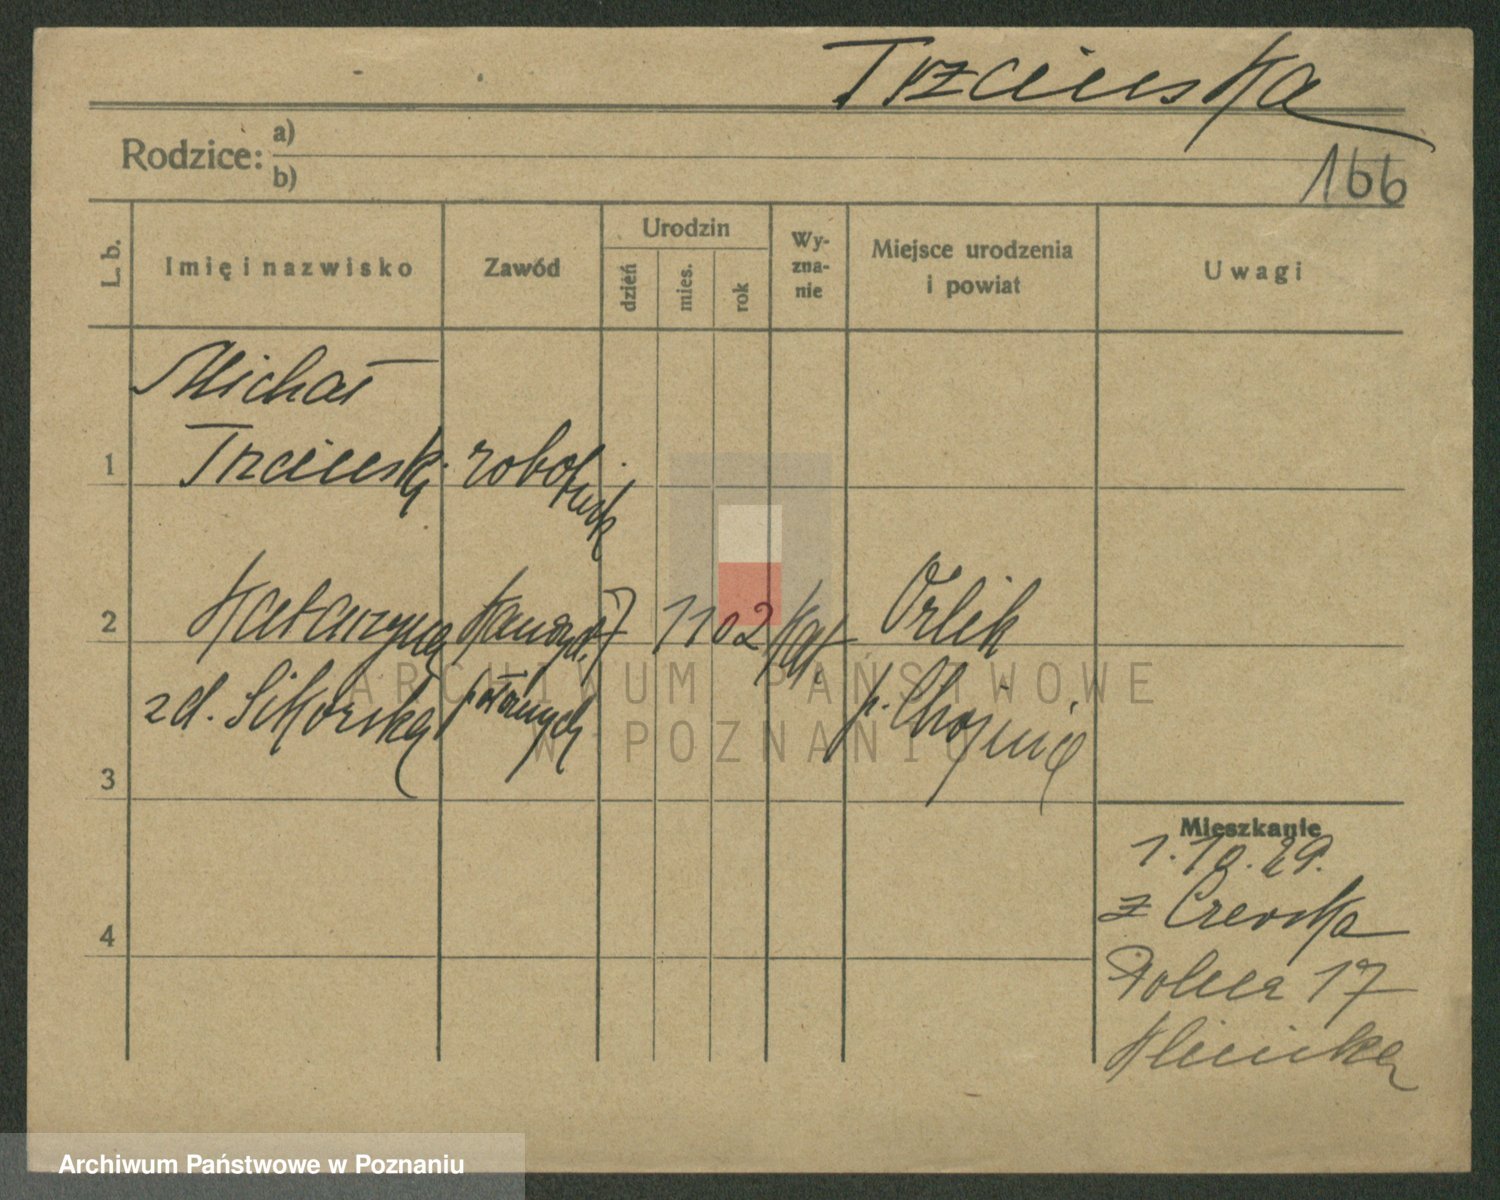 Trzcinska
Rodzice: a)
b)
166
L. b.
Imię i nazwisko
Zawód
Urodzin
dzień
mies.
rok
Wy-
zna-
nie
Miejsce urodzenia
i powiat
Uwagi
Michał
1 Trzcinski robotnik
2 Katarzyna 7 1 02 kat Orlik
zd. Sikorska położnych p. Chojnice
3
Mieszkanie
1.10.29.
z Czerska
4
Dolna 17
Klinika
ARCHIWUM PAŃSTWOWE
W POZNANIU
Archiwum Państwowe w Poznaniu